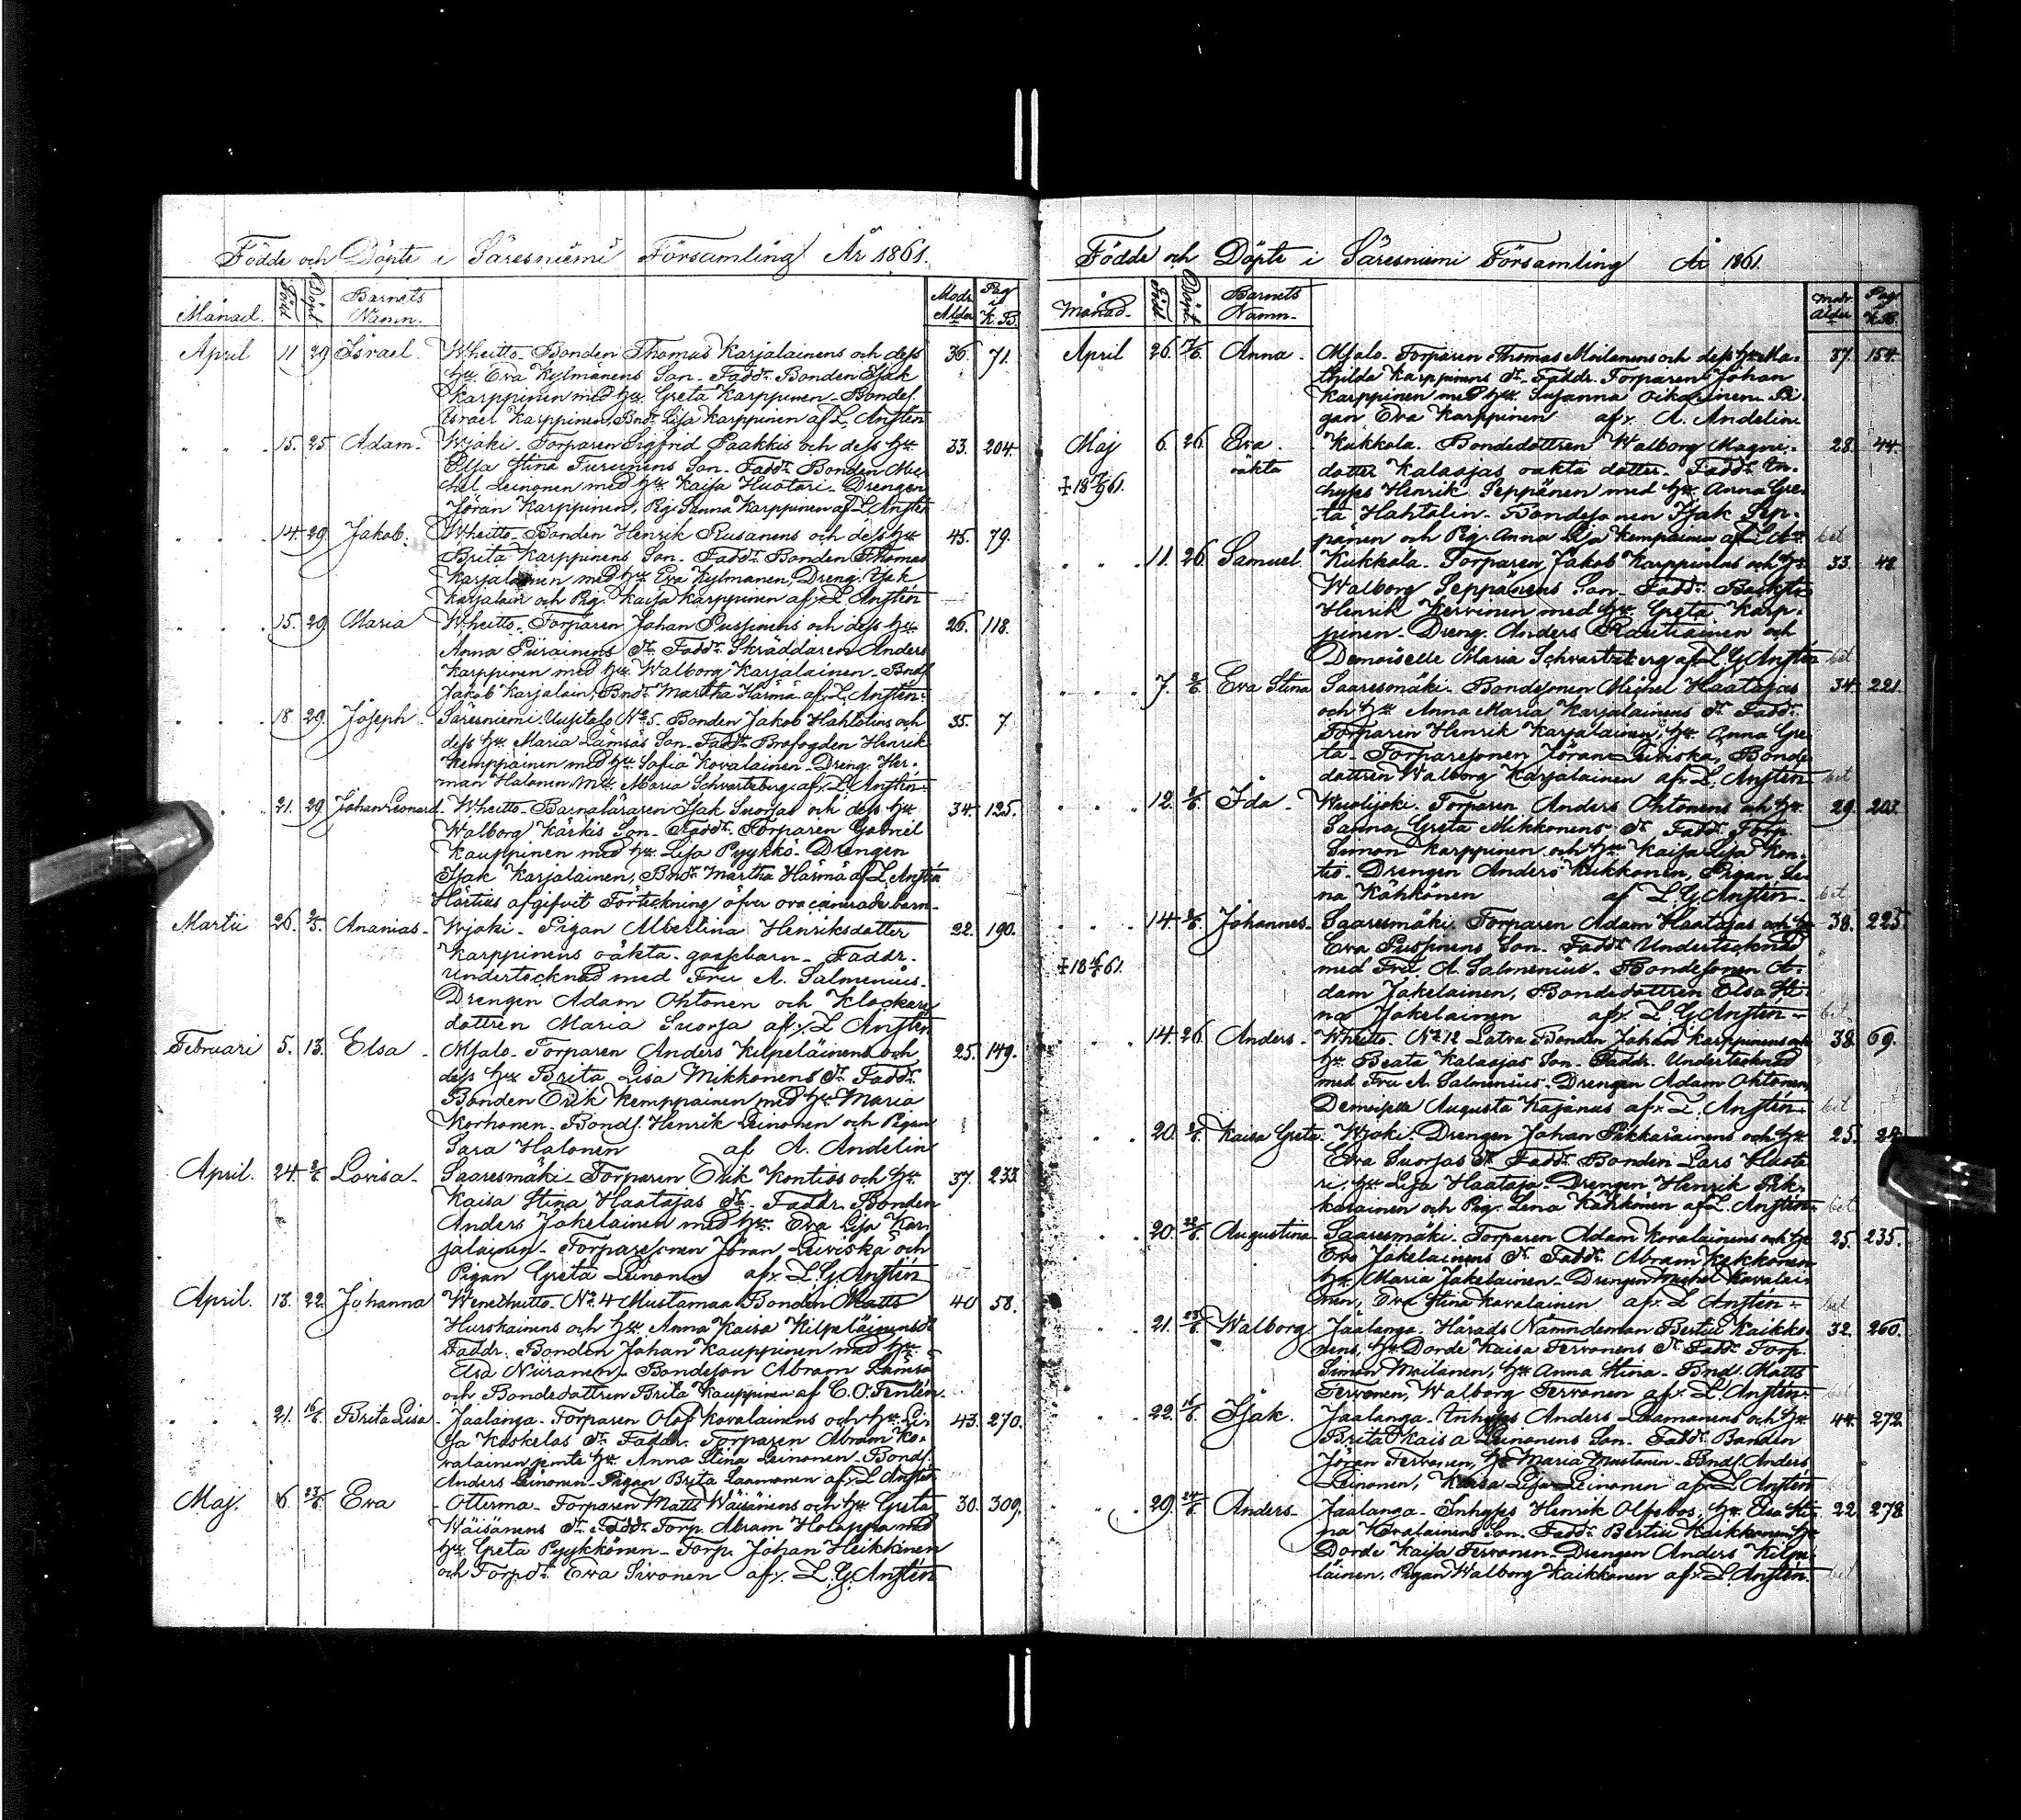 Födde och Döpte i Säresniemi Församling År 1861.
Månad. Född Döpt Barnets Namn. Modr. Ålder Pag i K.B.
April 11 29 Israel. Wheitto- Bonden Thomas Karjalainens och dess 36. 71.
hu. Eva Kylmänens Son- Faddr. Bonden Isak
Karppinen med hu. Greta Karppinen- Bondes.
Israel Karppinen, Bndr. Lisa Karppinen af L. Anstén
" " 15. 25. Adam- Wjoki- Torparen Sigfrid Paakkis och dess hu. 33. 204.
Elsa Stina Turunens Son- Faddr. Bonden Mic-
hel Leinonen med hu. Kaisa Huotari- Drengen
Jöran Karppinen, Pig. Sanna Karppinen af L. Anstén
" " 14. 29. Jakob. Wheitto- Bonden Henrik Rusanens och dess hu. 45. 79.
Brita Karppinens Son- Faddr. Bonden Thomas
Karjalainen med hu. Eva Kylmänen, Dreng. Isak
Karjalain och Pig. Kaisa Karppinen af v. L. Anstén
" " 15. 29. Maria Wheitto- Torparen Johan Pussinens och dess hu. 26. 118.
Anna Piirainens dr. Faddr. Skräddaren Anders
Karppinen med hu. Walborg Karjalainen- Bnds.
Jakob Karjalain, Bndr. Martha Härmä af v. L. Anstén.
" " 18 29. Joseph- Säresniemi Uusitalo No 5. Bonden Jakob Hahtolins och 35. 7
dess hu. Maria Lämsäs Son- Faddr. Brofogden Henrik
Kemppainen med hu. Sofia Kovalainen- Dreng. Her-
man Halonen, Mll. Maria Schvartzberg af v. L. Anstén.
" " 21. 29. Johan Leonard. Wheitto- Barnaläraren Isak Suorsas och dess hu. 34. 125.
Walborg Kärkis Son- Faddr. Torparen Gabriel
Kauppinen med hu. Lisa Pyykkö- Drengen
Isak Karjalainen, Bndr. Martha Härmä af L. Anstén
Härtills afgifvit Förteckning öfver ovaccinerade barn-
Martii 26. 2/5. Ananias- Wjoki- Pigan Albertina Henriksdotter 22. 190.
Karppinens oäkta gossebarn- Faddr.
Undertecknad med Fru A. Salmenius-
Drengen Adam Ohtonen och Klockare
dottren Maria Suorsa af v. L. Anstén
Februari 5. 13. Elsa- Msalo- Torparen Anders Kilpeläinens och 25. 149.
dess hu. Brita Lisa Mikkonens dr. Faddr.
Bonden Erik Kemppainen med hu. Maria
Korhonen- Bonds. Henrik Leinonen och Pigan
Sara Halonen af A. Andelin
April. 24. 2/6 Lovisa- Saaresmäki- Torparen Erik Kontios och hu. 37. 233.
Kaisa Stina Haatajas dr. Faddr. Bonden
Anders Jakelainen med hu. Eva Lisa Kar-
jalainen- Torparesonen Jöran Leiviskä och
Pigan Greta Leinonen af v. L. G. Anstén
April. 13. 22. Johanna Wenetheitto- No 4 Mustamaa Bonden Matts 40 58.
Hurskainens och hu. Anna Kaisa Kilpeläinens dr
Faddr. Bonden Johan Kauppinen med hu.
Elsa Niiranen- Bondeson Abram Lämsä
och Bondedottren Brita Kauppinen af C. O. Fentén.
" " 21. 16/6. Brita Lisa- Jaalanga- Torparen Olof Kovalainens och hu. Li- 43. 270.
sa Koskelos dr. Faddr. Torparen Abram Ko-
valainen jemte hu. Anna Stina Leinonen- Bonds.
Anders Leinonen- Pigan Brita Laamanen af v. L. Anstén
Maj. 6. 23/6. Eva Otterma- Torparen Matts Wäisänens och hu. Greta 30. 309.
Wäisänens dr. Faddr. Torp. Abram Holappa med
hu. Greta Pyykkönen- Torp. Johan Heikkinen
och Torp.dr. Eva Sivonen af v. L. G. Anstén
Födde och Döpte i Säresniemi Församling År 1861.
Månad. Född Döpt Barnets Namn- Modr. Ålder Pag. i K.B.
April 26. 17/6. Anna- Msalo- Torparen Thomas Moilanens och dess hu. Ma- 37. 154.
thilda Karppinens dr.- Faddr. Torparen Johan
Karppinen med hu. Susanna Oikarinen- Pi-
gan Eva Karppinen af v. A. Andelin.
Maj 6. 26 Eva- Kukkola- Bondedottren Walborg Magni- 28. 44.
oäkta dotter Kalaojas oäkta dotter- Faddr. In-
hyses Henrik Seppänen med hu. Anna Gre-
ta Hahtolin- Bondesonen Isak Sep-
pänen och Pig. Anna Lisa Kemppainen af L. A. bet
" " 11. 26. Samuel. Kukkola- Torparen Jakob Karppinens och hu. 33. 48.
Walborg Seppänens Son- Faddr. Backst.
Henrik Kervinen med hu. Greta Karp-
pinen- Dreng. Anders Rautiainen och
Demoiselle Maria Schvartzberg af v. L. G. Anstén bet
" " 7. 2/6. Eva Stina Saaresmäki- Bondesonen Michel Haatajas 34. 221.
och hu. Anna Maria Karjalainens dr. Faddr.
Torparen Henrik Karjalainen, hu. Anna Gre-
ta- Torparesonen Jöran Leiviskä, Bonde-
dottren Walborg Karjalainen af v. L. Anstén- bet
" " 12. 2/6. Ida- Wuolijoki- Torparen Anders Ohtonens och hu. 29. 203.
Sanna Greta Mikkonens dr. Faddr. Torp.
Simon Karppinen och hu. Kaisa Lisa Kon-
tio- Drengen Anders Kukkonen, Pigan Le-
na Kähkönen af L. G. Anstén- bet
" " 14. 2/6. Johannes- Saaresmäki- Torparen Adam Haatajas och hu. 38. 225.
Eva Pussinens Son- Faddr. Undertecknad
med Fru A. Salmenius- Bondesonen A-
dam Jakelainen, Bondedottren Elsa Sti-
na Jakelainen af v. L. G. Anstén- bet
" " 14. 26. Anders- Wheitto- No 12 Latva Bonden Johan Karppinens och 38. 69.
hu. Beata Kalaojas Son- Faddr. Undertecknad
med Fru A. Salmenius- Drengen Adam Ohtonen
Demoiselle Augusta Kajanus af v. L. Anstén- bet
" " 20. 2/6 Kaisa Greta- Wjoki- Drengen Johan Pikkarainens och hu. 25. 24.
Eva Suorsas dr. Faddr. Bonden Lars Huota-
ri, hu. Lisa Haataja- Drengen Henrik Pik-
karainen och Pig. Lena Kähkönen af L. Anstén- bet
" " 20. 22/6. Augustina- Saaresmäki- Torparen Adam Kovalainens och hu. 25. 235.
Eva Jakelainens dr. Faddr. Abram Kekkonen
hu. Maria Jakelainen- Drengen Michel Kovalai-
nen, Eva Stina Kovalainen af v. L. Anstén- bet
" " 21. 23/6. Walborg Jaalanga- Härads Nämndeman Bertil Kaikko- 32. 260.
nens, hu. Dorde Kaisa Tervonens dr. Faddr. Torp.
Simon Moilanen, hu. Anna Stina- Bnds. Matts
Tervonen, Walborg Tervonen af v. L. Anstén-
" " 22. 16/6. Isak. Jaalanga- Inhyses Anders Laamanens och hu. 44. 272.
Brita Kaisa Leinonens Son- Faddr. Bonden
Jöran Tervonen, hu. Maria Mustonen- Bnds. Anders
Leinonen, Kaisa Lisa Leinonen af v. L. Anstén
" " 29. 24/6. Anders- Jaalanga- Inhyses Henrik hu. Elsa Sti- 22. 278.
na Kovalainens Son- Faddr. Bertil Kaikkonen, hu.
Dorde Kaisa Tervonen- Drengen Anders Kilpe-
läinen, Pigan Walborg Kaikkonen af v. L. Anstén. bet